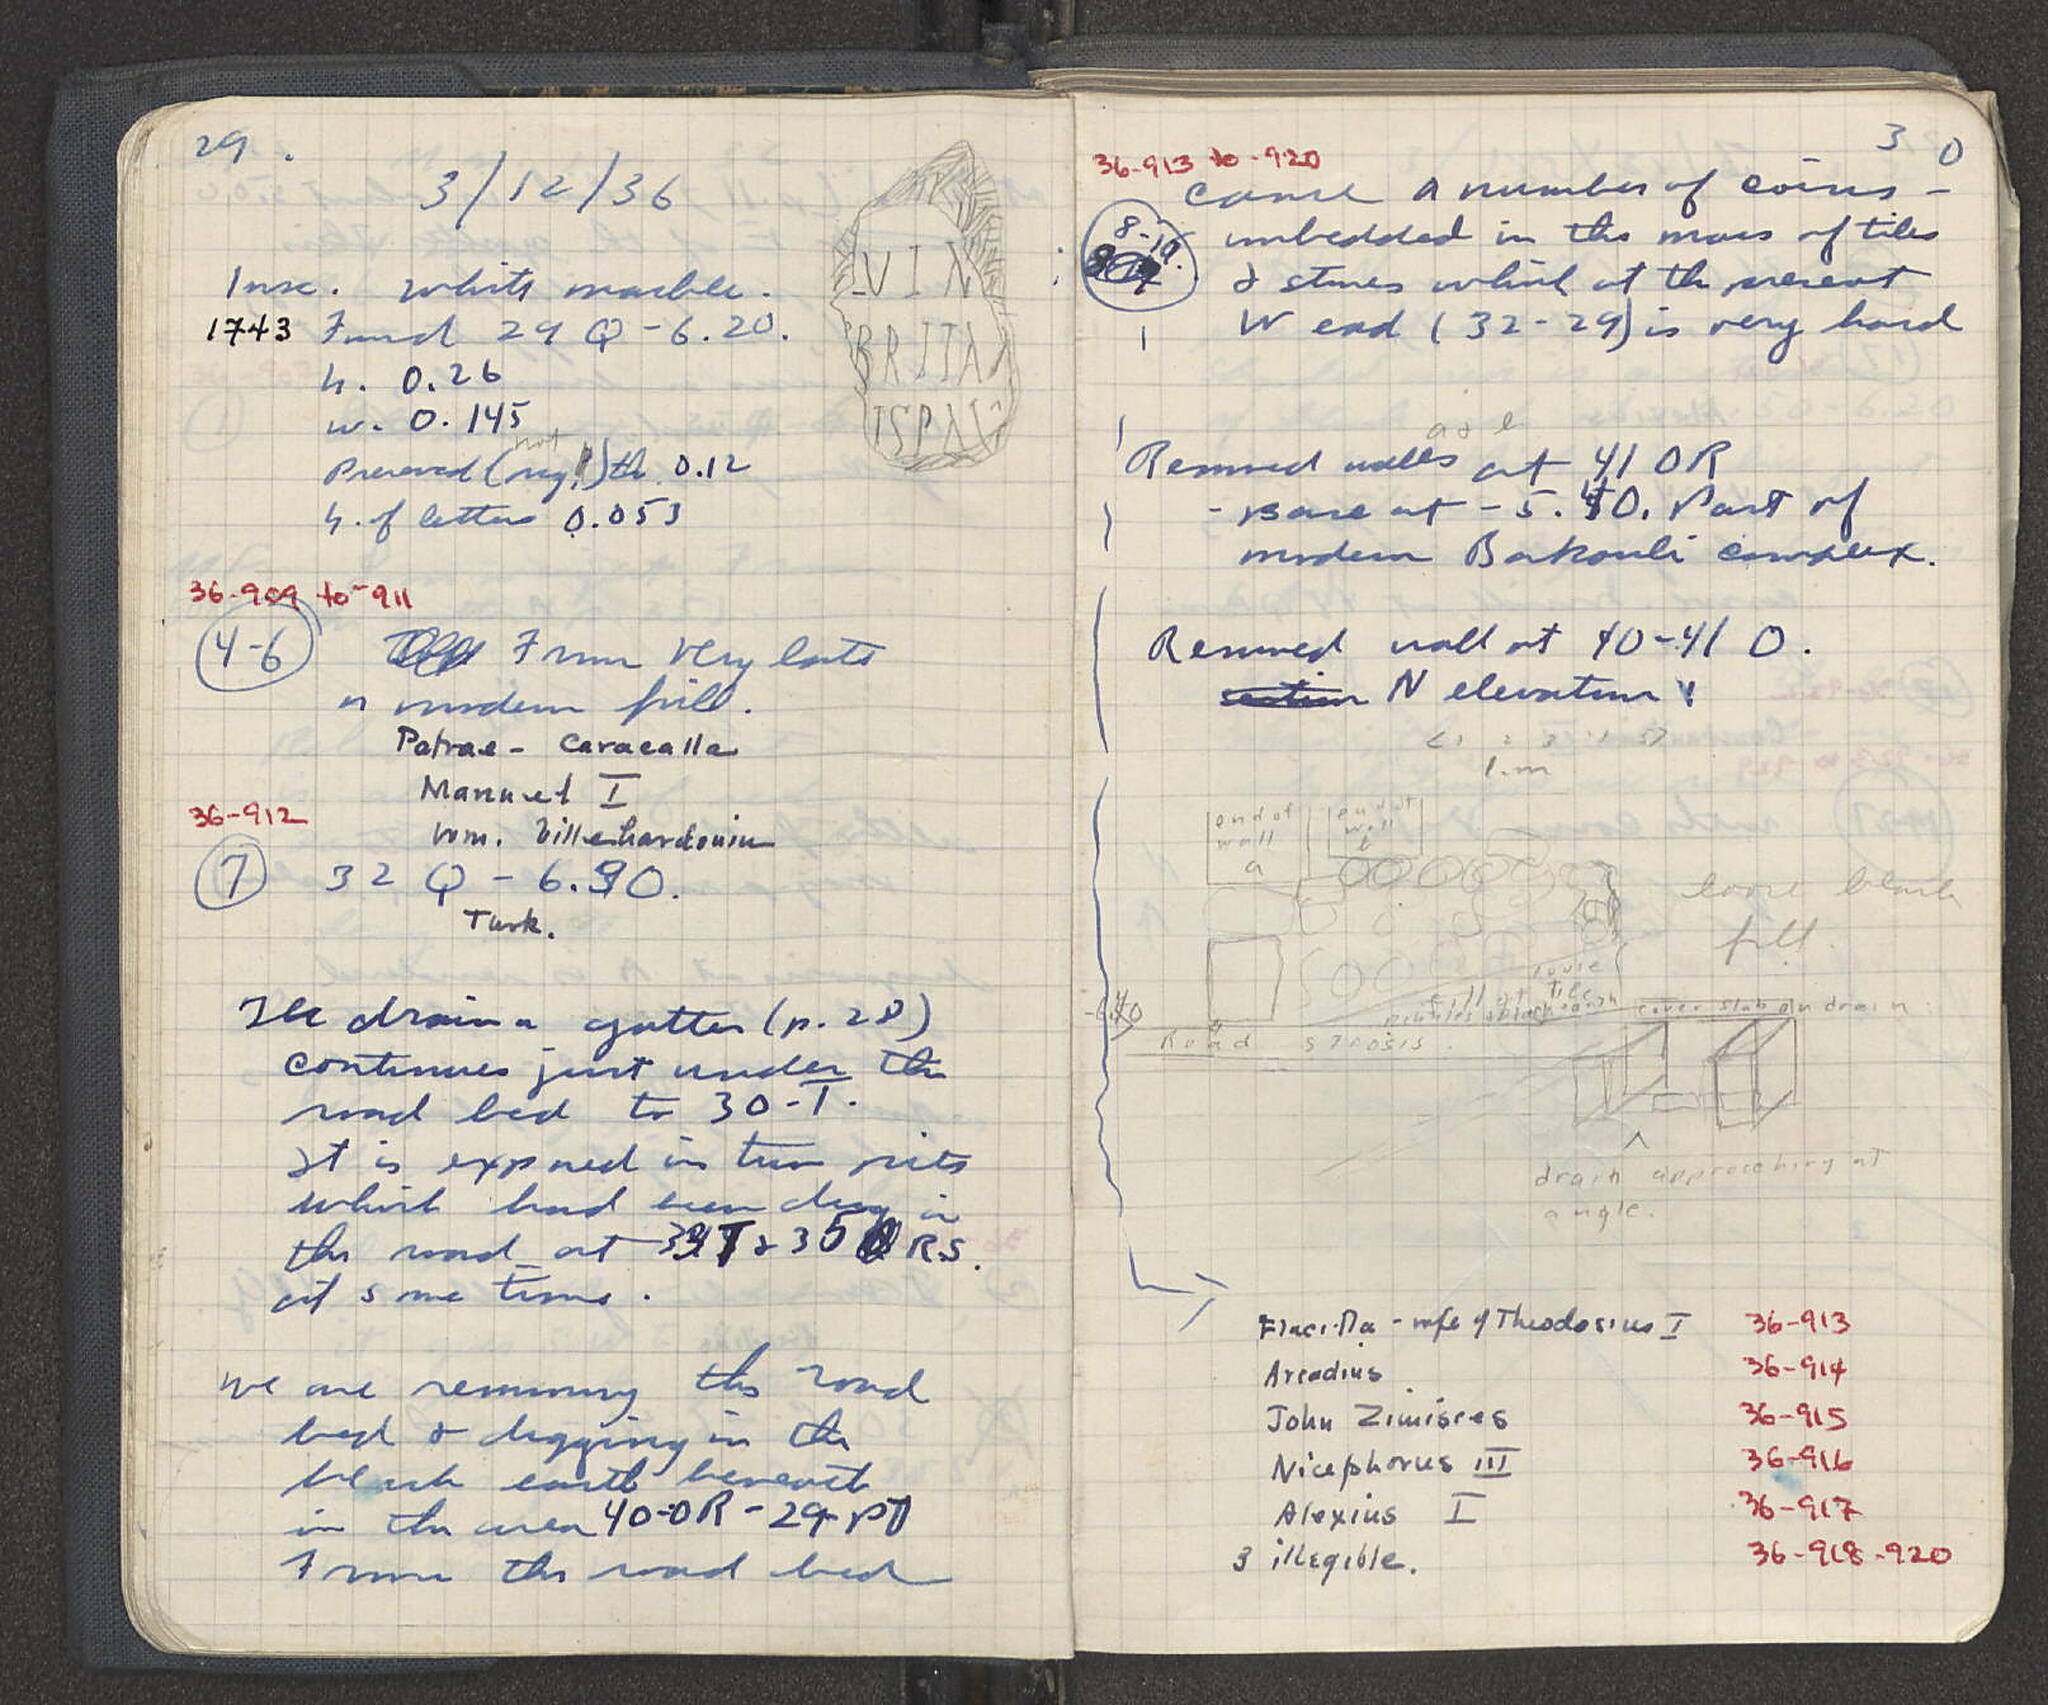 29.
3/12/36
Insc. White marble.
1743 Found 29 Q - 6.20.
h. 0.26
w. 0.145
not
Preserved (orig!) th. 0.12
h. of letters 0.053
VIN
BRITA
ISPAN
36-909 to -911
4-6 From very late
or modern fill.
Patrae - Caracalla
Manuel I
Wm. Villehardouin
36-912
7 32 Q - 6.90.
Turk.
The drain or gutter (p. 28)
continues just under the
road bed to 30-T.
It is exposed in two pits
which had been dug in
the road at & 35 RS.
at some time.
We are removing the road
bed & digging in the
black earth beneath
in the area 40-OR - 29-
From the road bed
30
36-913 to -920
came a number of coins -
8-19. imbedded in the mass of tiles
& stones which at the present
W end (32-29) is very hard
a & b
Removed walls at 41 OR
- Base at - 5.40. Part of
modern Bakouli complex.
Removed wall at 40-41 O.
section N elevation
1 m
end of wall a
end of wall b
loose black
fill.
fill of
tile
Road strosis.
cover slab on drain
drain approaching at
angle.
Flacilla - wife of Theodosius I 36-913
Arcadius 36-914
John Zimisces 36-915
Nicephorus III 36-916
Alexius I 36-917
3 illegible. 36-918-920